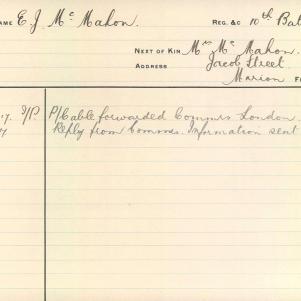 NAME E. J. Mc Mahon. REG. &C 10th Bat
NEXT OF KIN Mrs Mc Mahon.
ADDRESS Jacob Street
Marion
17. I/P. P/Cable forwarded Commrs London.
7 Reply from Commrs. Information sent